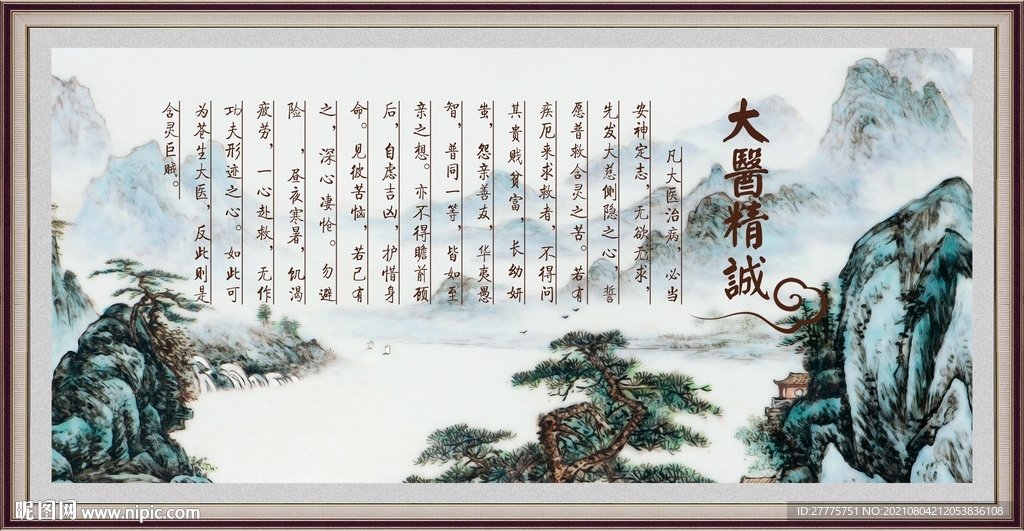 大醫精誠
凡大医治病，必当
安神定志，无欲无求，
先发大慈侧隐之心，誓
愿普救含灵之苦。若有
疾厄来求救者，不得问
其贵贱贫富，长幼妍
蚩，怨亲善友，华夷愚
智，普同一等，皆如至
亲之想。亦不得瞻前顾
后，自虑吉凶，护惜身
命。见彼苦恼，若己有
之，深心凄怆。勿避
险 ，昼夜寒暑，饥渴
疲劳，一心赴救，无作
功夫形迹之心。如此可
为苍生大医，反此则是
含灵巨贼。
昵图网 www.nipic.com
ID:27775751 NO:20210804212053836108